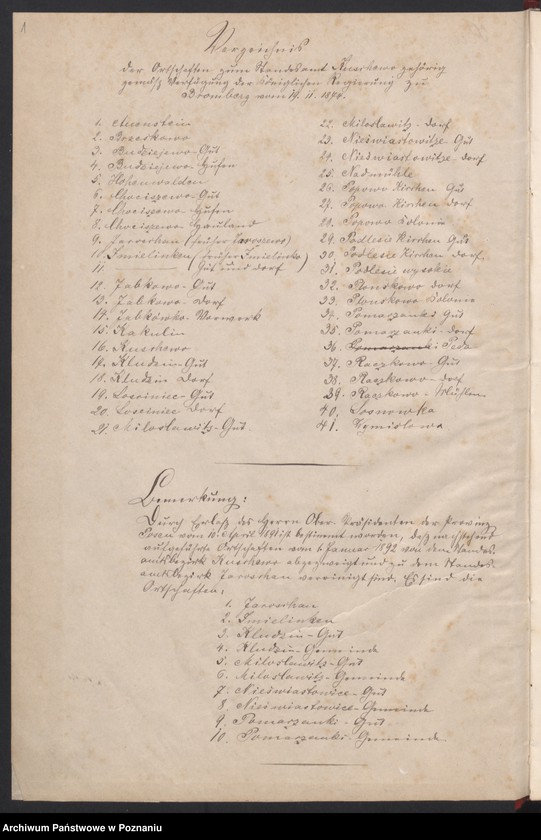 1
Verzeichnis
der Ortschaften zum Standesamt Kuschewo gehörig
gemäß Verfügung der Königlichen Regierung zu
Bromberg vom
2.
3. Budziejewo-Gut
4. Budziejewo-Hufen
5. Hohenwalden
6. Chociszewo-Gut
7. Chociszewo-Hufen
8. Chociszewo Hauland
9. Jaroschau (früher Jaroszewo)
10. Imielinken (früher Imielinko)
11. Gut und Dorf
12. Jabkowo-Gut
13. Jabkowo-Dorf
14. Jabkowko-Vorwerk
15. Kakulin
16.
17. Kludzin-Gut
18. Kludzin Dorf
19. Gut
20. Dorf
21. Miloslawitz-Gut
22. Miloslawitz-Dorf
23. Nieswiastowitze-Gut
24. Nieswiastowitze-Dorf
25.
26. Popowo Kirchen Gut
27. Popowo Kirchen Dorf
28. Popowo Colonie
29. Podlesie Kirchen Gut
30. Podlesie Kirchen Dorf
31. Podlesie wysokie
32. Plonskowo Dorf
33. Plonskowo Colonie
34. Pomarzanki Gut
35. Pomarzanki-Dorf
36.
37. Raczkowo-Gut
38. Raczkowo-Dorf
39. Raczkowo-
40. Sosnowka
41.
Bemerkung:
Durch Erlaß des Herrn Ober Präsidenten der Provinz
Posen vom 10. April 1891 ist bestimmt worden, daß nachstehend
aufgeführte Ortschaften vom 1. Januar 1892 von dem Standes-
amtsbezirk abgezweigt und zu dem Standes-
amtsbezirk Jaroschau vereinigt sind. Es sind die
Ortschaften:
1. Jaroschau
2. Imielinken
3. Kludzin-Gut
4. Kludzin-Gemeinde
5. Miloslawitz-Gut
6. Miloslawitz-Gemeinde
7. Nieswiastowice-Gut
8. Nieswiastowice-Gemeinde
9. Pomarzanki-Gut
10. Pomarzanki-Gemeinde
Archiwum Państwowe w Poznaniu